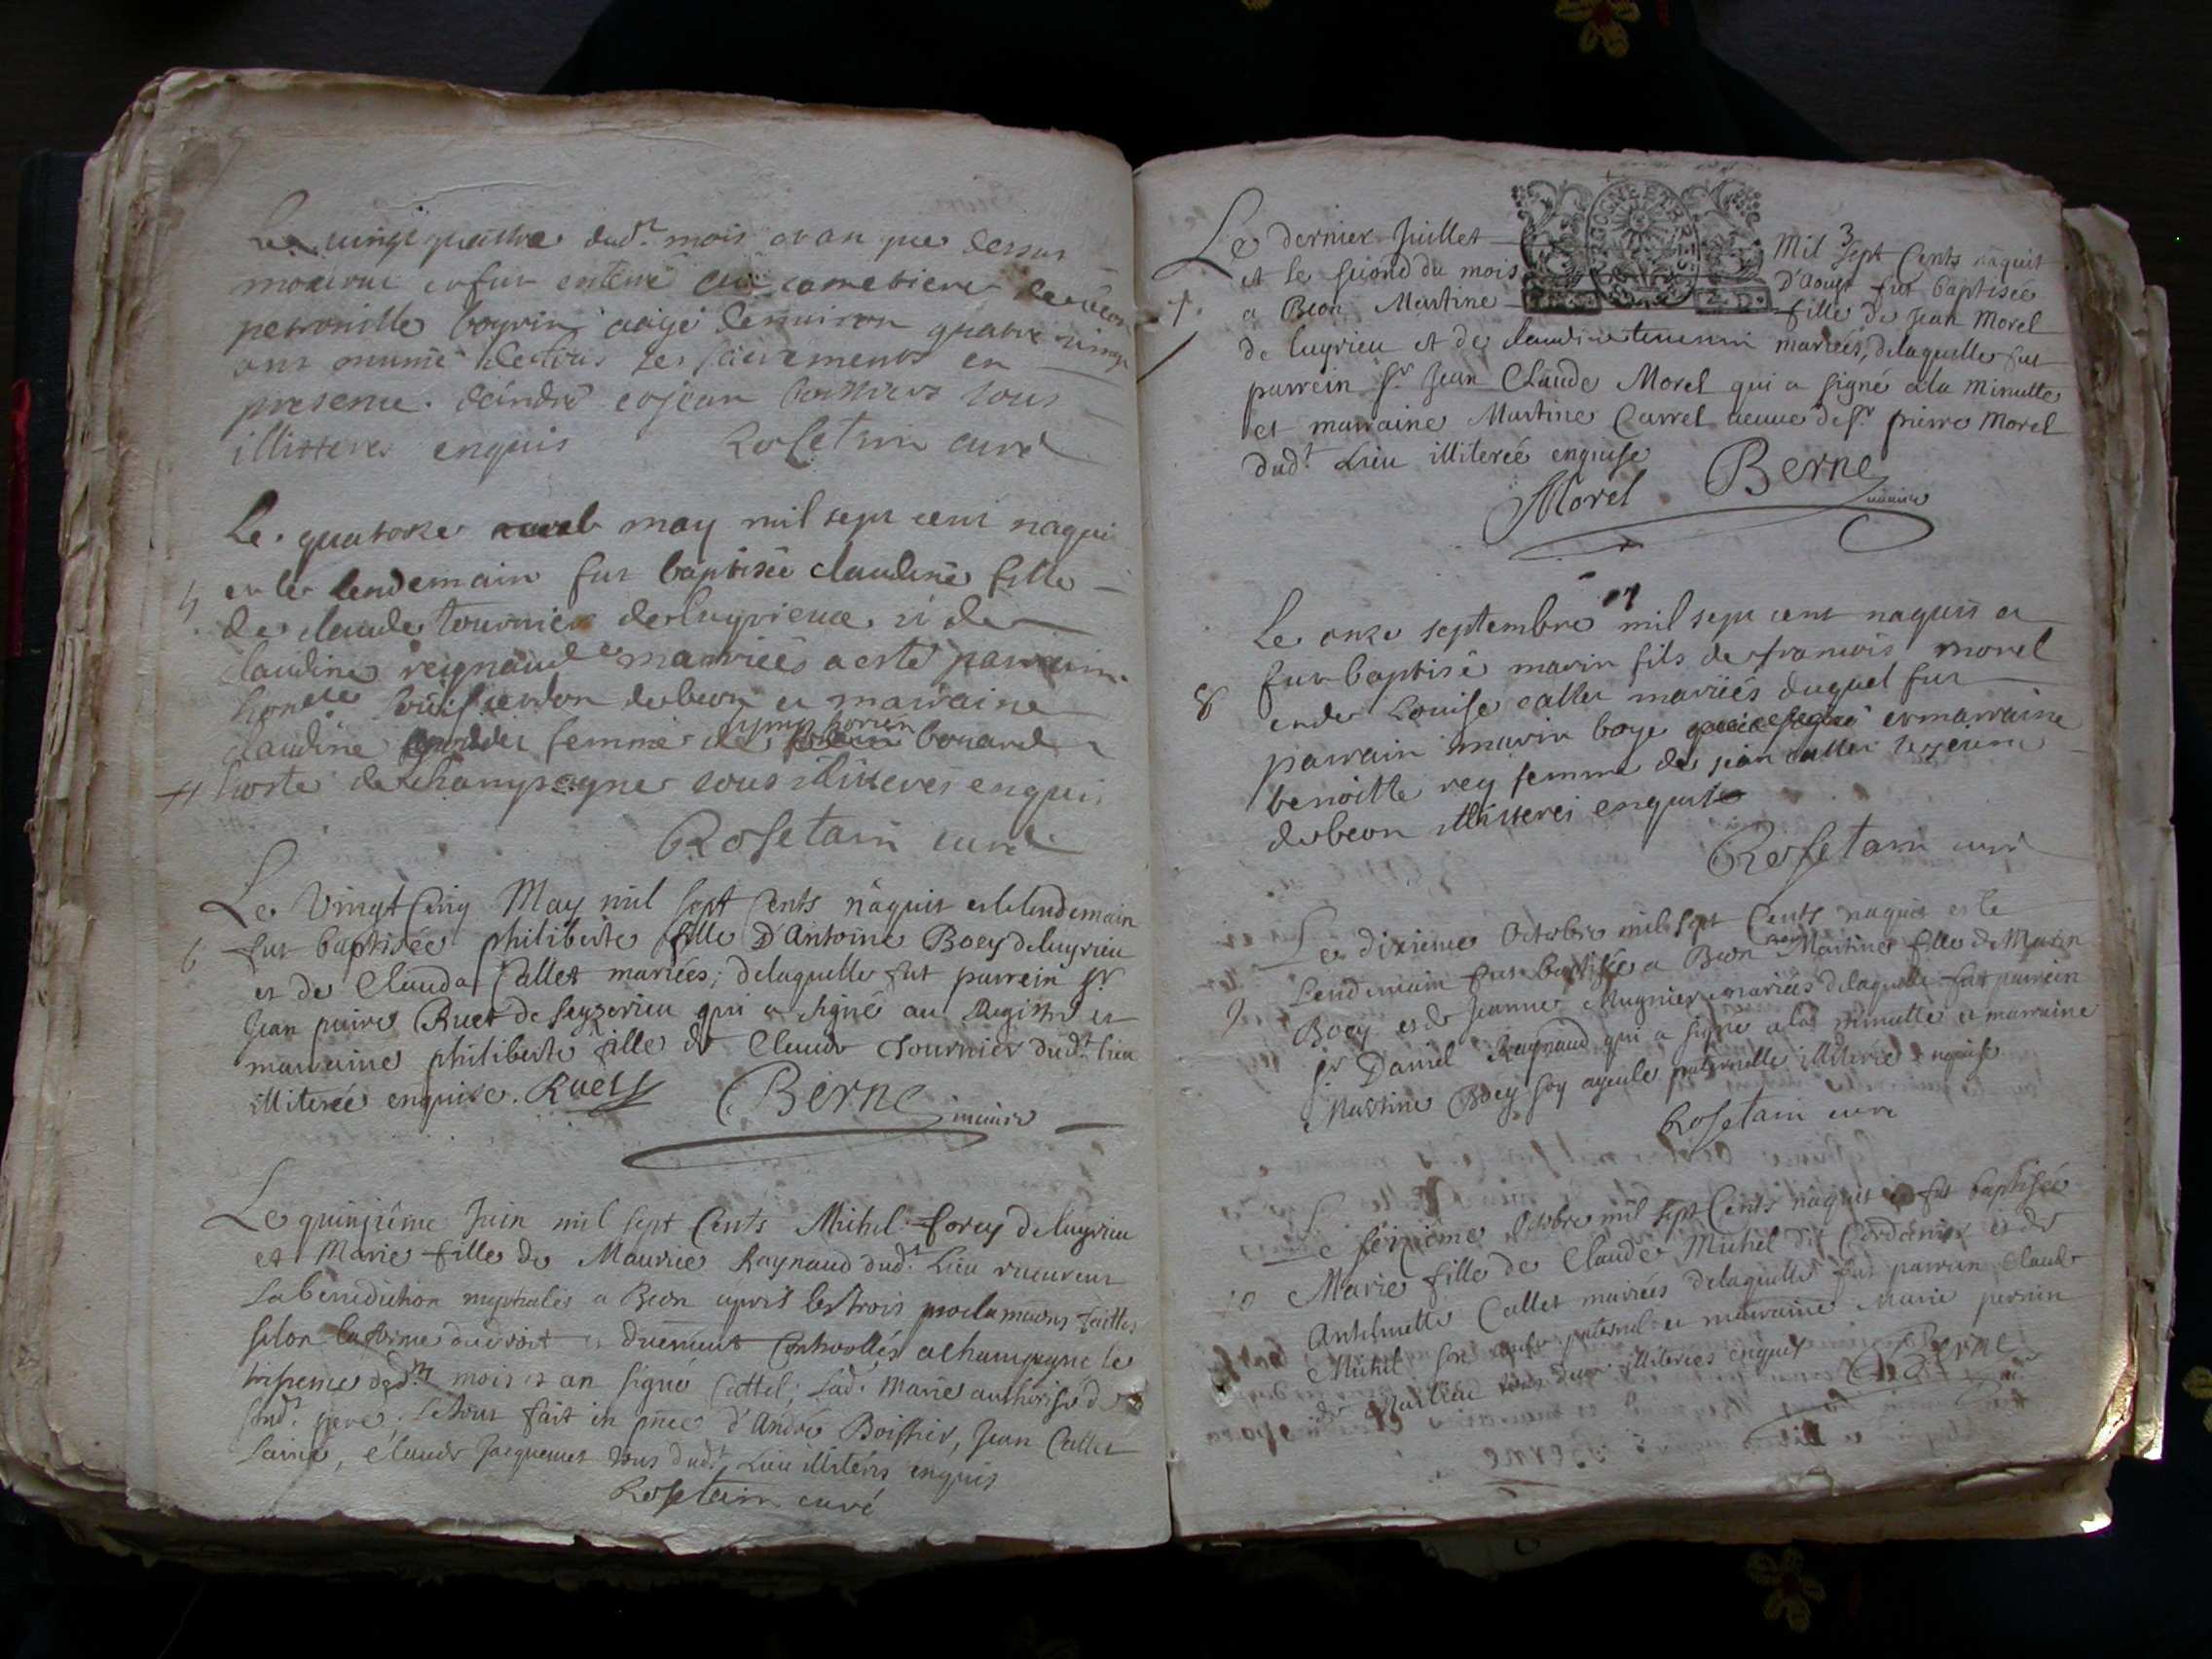 Le vingt quatre dud.t mois et an que dessus
mourut et fut enterré au cometiere de béon
petronille boyrin aagé denuiron quatre vingt
ans munie de tous les sacrements en
presence. dandré et jean boissiers tous
illitteres enquis Rosetain curé
Le. quatorze may mil sept cent naqui
5 et le lendemain fut baptisée claudine fille
de claude tournier de luyrieux et de
claudine reignaud mariées a esté parrain
de beon et marraine
claudine femme de symphorien bouard
hoste de champagne tous illiteres enquis
Rosetain curé
Le Vingt Cinq May mil sept Cents nâquit et le lendemain
6 fut baptisée philiberte fille D'Antoine Boey de luyrieu
et de Clauda Callet mariées; delaquelle fut parrein Sr
Jean puivre Ruet de seyzerieu qui a signé au Registre et
marraine philiberte fille de Claude Tournier dud.t lieu
illiterée enquise. Ruets Berne vicaire
Le quinzième Juin mil sept Cents Michel forey de luyrieu
et Marie fille de Maurice Raynaud dud.t Lieu receurent
La benediction nuptiale a Beon apres les trois proclamaons faittes
selon la forme du droit et duement Controllés a champagne le
treizieme dud.t mois et an signé Cattel; Lad. Marie authorisé de
sond. pere. Le tout fait en pnce d'André Boissier, Jean Callet
Lainé, Claude Jacquemet tous dud.t Lieu illiterés enquis
Rosetain curé
3
Le dernier Juillet Mil sept Cents nâquit
et le second du mois D'Aoust fut baptisée
7. a Beon Martine fille de Jean Morel
de luyrieu et de claudine mariées, delaquelle fut
parrein Sr Jean Claude Morel qui a signé a la Minutte
et marraine Martine Carrel veuve de Sr pierre Morel
dud.t Lieu illiterée enquise
Morel Berne vicaire
Le onze septembre mil sept cent naquis et
fut baptisé marin fils de francois morel
8 et de Louise callet mariés duquel fut
parrain marin boye et marraine
benoitte rey femme de jean callet
de beon illitteres enquis
Rosetain curé
Le dixieme Octobre mil sept Cents naquit et le
Lendemain fut baptisée a Beon Martine fille de Marin
9 Boey et de Jeanne Mugnier mariés delaquelle fut parrein
Sr Daniel Raynaud qui a signé a la minutte et marraine
Martine Boey soy ayeule paternelle illiterée enquise
Rosetain curé
Le seizieme Octobre mil sept Cents naquit et fut baptisée
10 Marie fille de Claude Michel dit Cordonnier et de
Anthelmette Callet mariées delaquelle fut parrein Claude
Michel son paternel et marraine Marie perrin
de tous deux illiterées enquis Berne